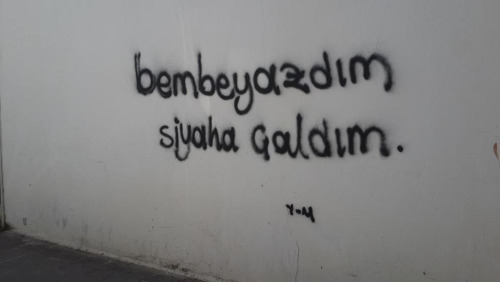 bembeyazdım
siyaha çaldım.
Y-M